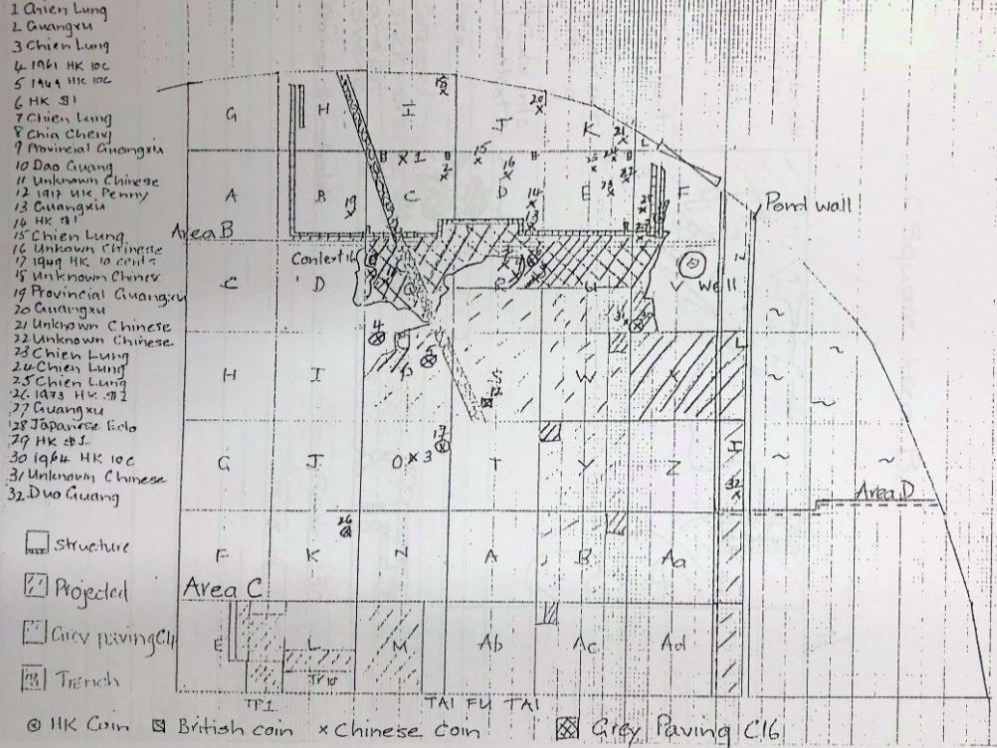 1 Chien Lung
2 Guangxu
3 Chien Lung
4 1961 HK 10c
5 1949 HK 10c
6 HK $1
7 Chien Lung
8 Chia Cheng
9 Provincial Guangxu
10 Dao Guang
11 Unknown Chinese
12 1917 UK Penny
13 Guangxu
14 HK $1
15 Chien Lung
16 Unkown Chinese
17 1949 HK 10 cents
18 Unknown Chines
19 Provincial Guangxu
20 Guangxu
21 Unknown Chinese
22 Unknown Chinese
23 Chien Lung
24 Chien Lung
25 Chien Lung
26 1973 HK $1
27 Guangxu
28 Japanese Edo
29 HK $1
30 1964 HK 10c
31 Unknown Chinese
32 Duo Guang
Structure
Projected
Grey paving C4
Trench
HK Coin
British coin
x Chinese Coin
Grey Paving C16
18
20
G H I J K L
21
1
15
2
16
A B C D E F
19
14
13
Area B
Pond wall
Context 16
C D
U V Well
4
H I P S W X
12
17
G J O x 3 T Y Z
H
32
Area D
26
F K N A B Aa
Area C
E L M Ab Ac Ad
TP1
TAI FU TAI